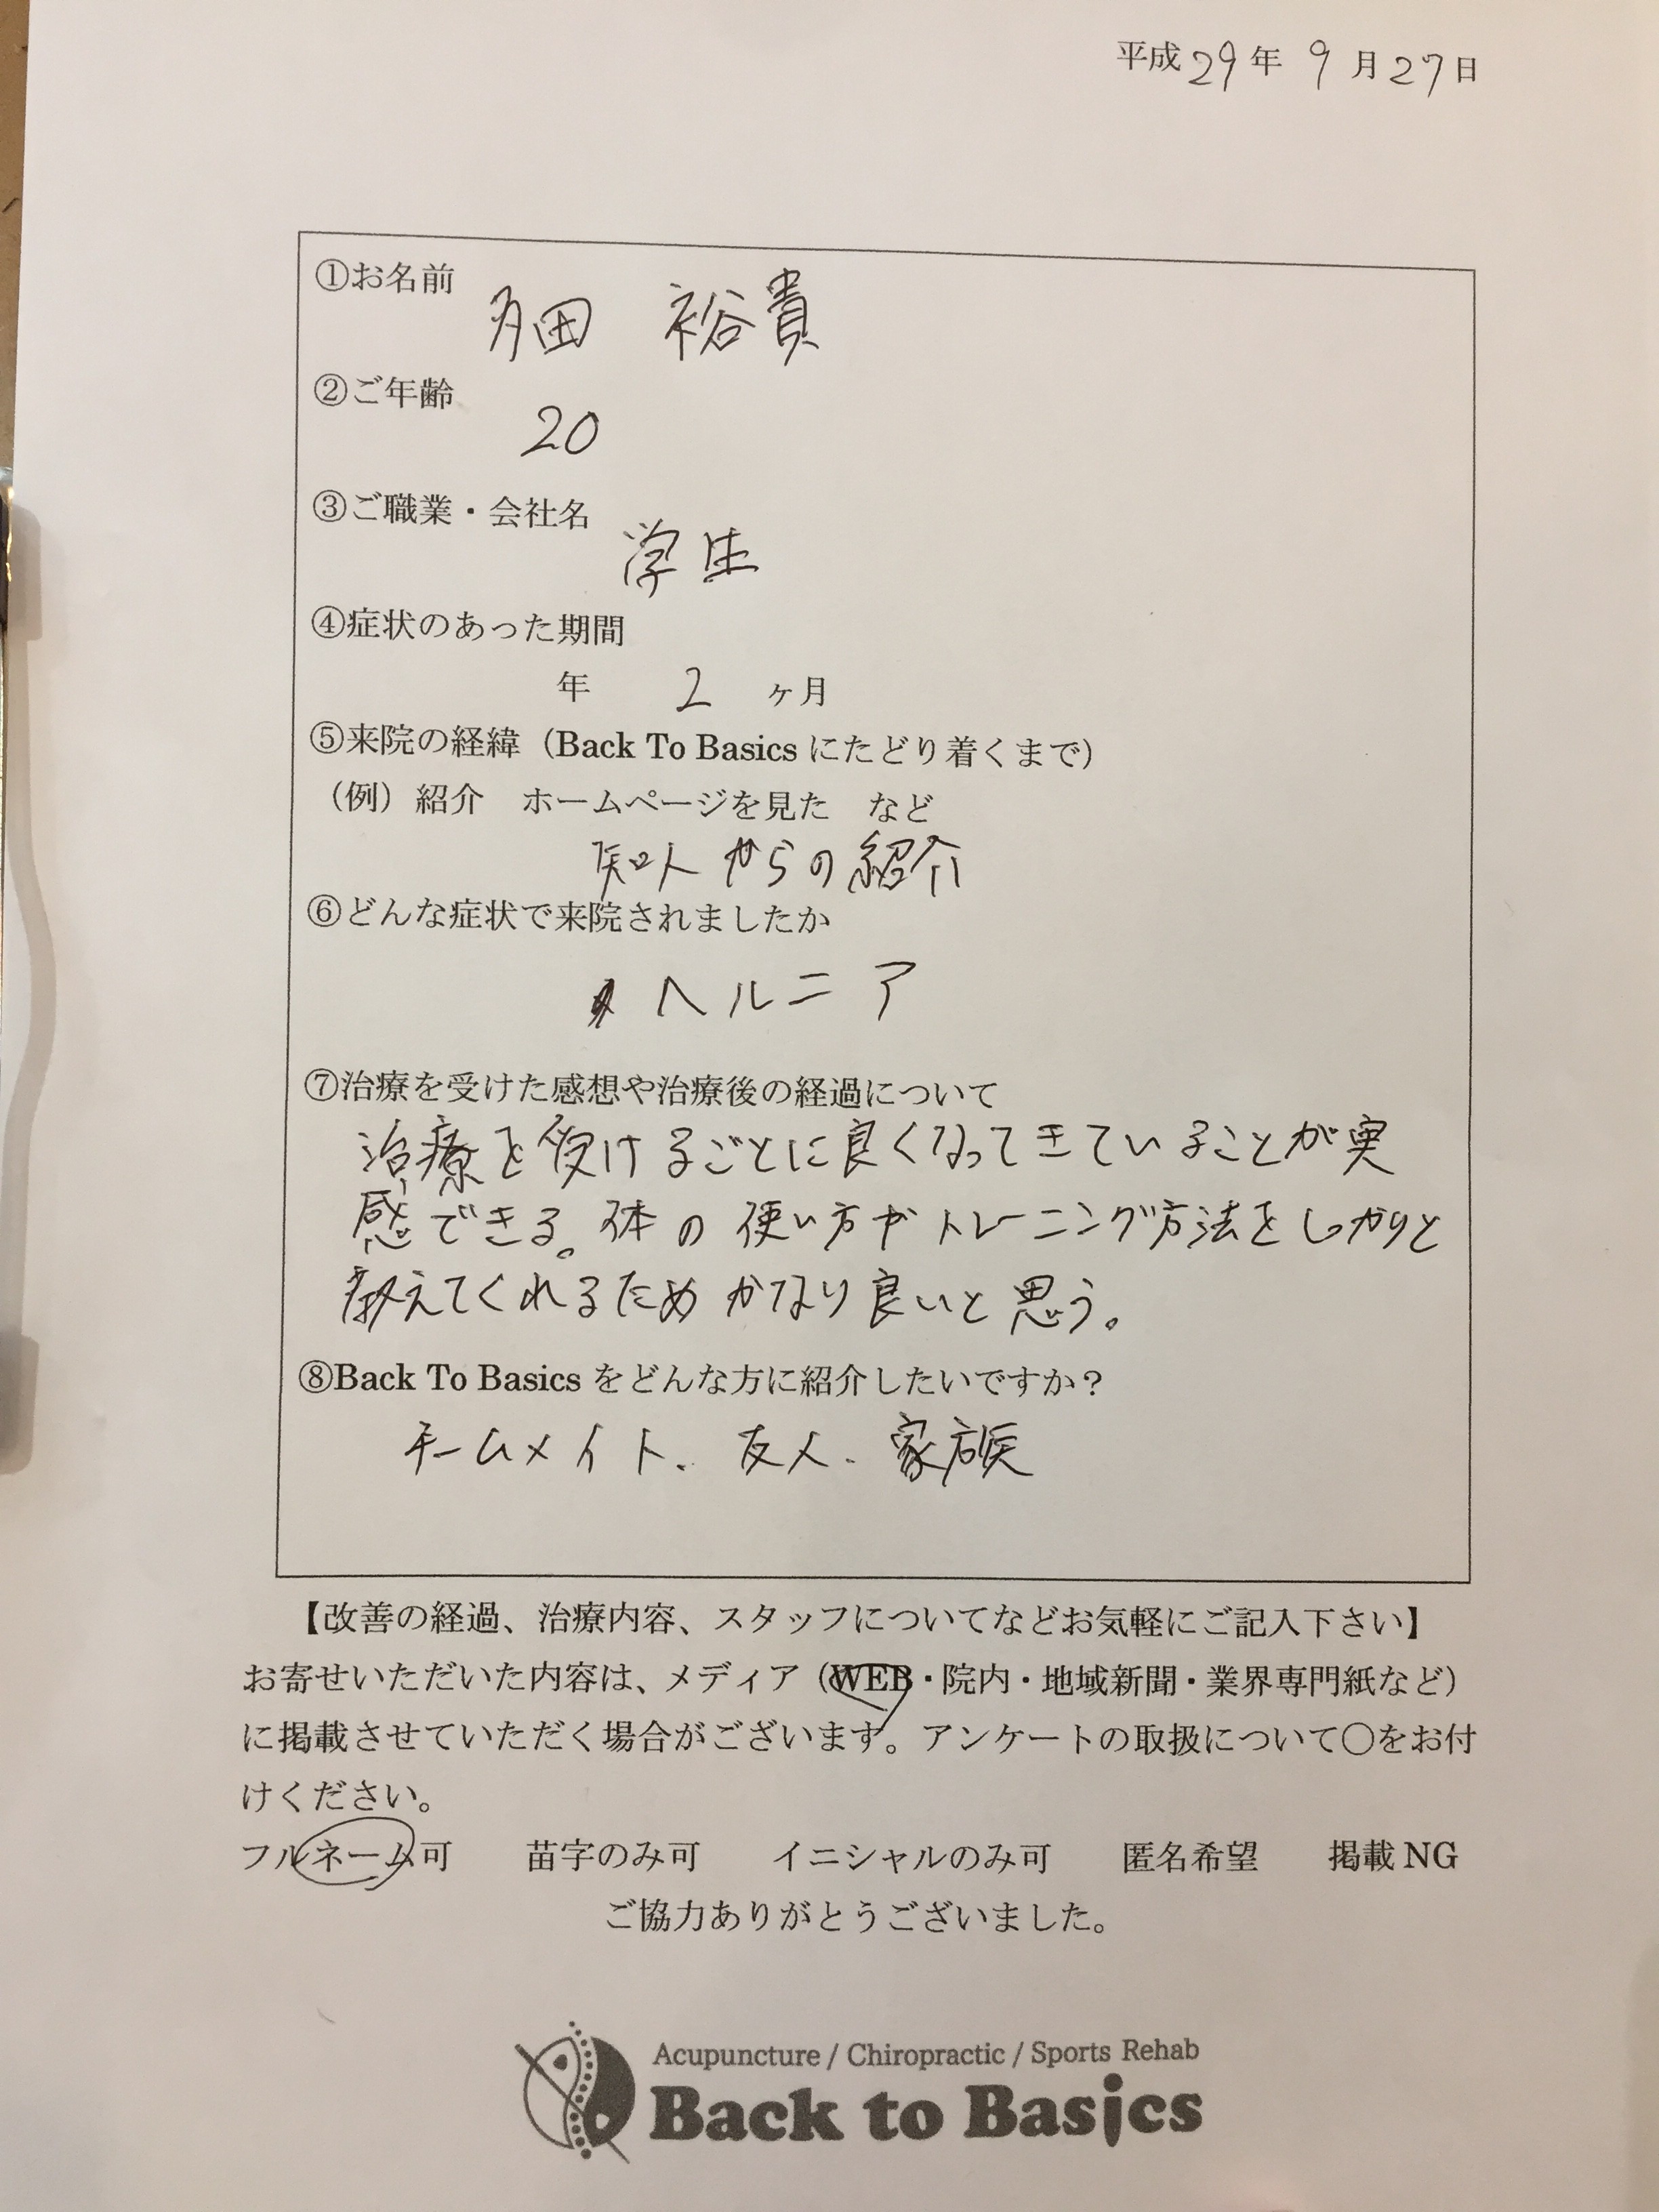 平成29年 9月27日
①お名前
多田 裕貴
②ご年齢
20
③ご職業・会社名
学生
④症状のあった期間
年 2 ヶ月
⑤来院の経緯（Back To Basics にたどり着くまで）
（例）紹介 ホームページを見た など
知人からの紹介
⑥どんな症状で来院されましたか
ヘルニア
⑦治療を受けた感想や治療後の経過について
治療を受けるごとに良くなってきていることが実
感できる。体の使い方やトレーニング方法をしっかりと
教えてくれるためかなり良いと思う。
⑧Back To Basics をどんな方に紹介したいですか？
チームメイト、友人、家族
【改善の経過、治療内容、スタッフについてなどお気軽にご記入下さい】
お寄せいただいた内容は、メディア（WEB・院内・地域新聞・業界専門紙など）
に掲載させていただく場合がございます。アンケートの取扱について〇をお付
けください。
フルネーム可 苗字のみ可 イニシャルのみ可 匿名希望 掲載 NG
ご協力ありがとうございました。
Acupuncture / Chiropractic / Sports Rehab
Back to Basics